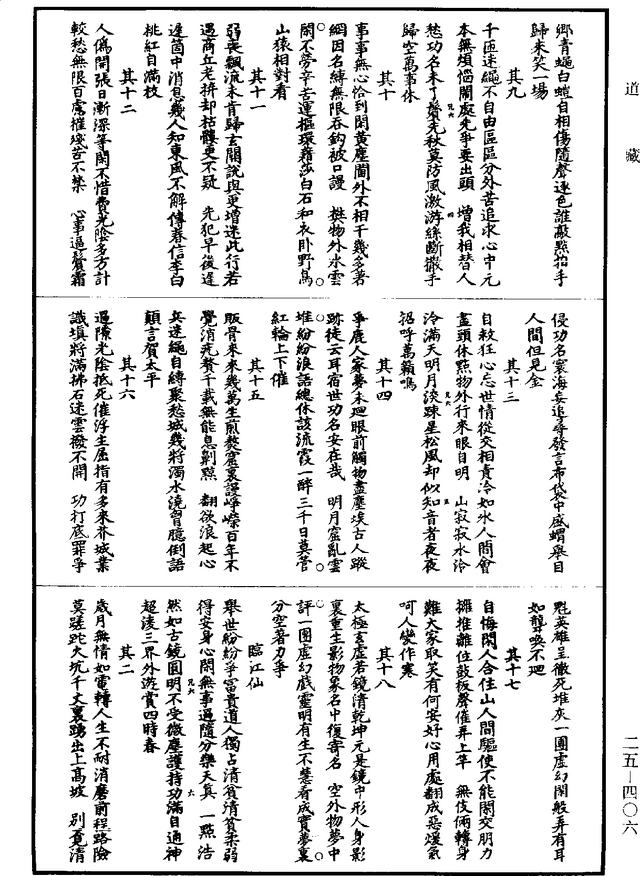 道藏
鄉青蠅白螘自相傷隨聲逐色誰敲點拍手
歸來笑一場
其九
千匝迷繩不自由區區分外苦追求心中元
本無煩惱鬧處先爭要出頭 增我相替人
愁功名未了鬢先秋莫防風激游絲斷撒手
歸空萬事休
其十
事事無心恰到閑黃塵闤外不相干幾多著
網因名縛無限吞鉤被口謾 樷物外水雲
閑不勞辛苦運樞環藉莎白石和衣卧野鳥
山猿相對看
其十一
弱喪飄流未肯歸玄關說與更增迷此行若
遇商丘老拚却枯髏更不疑 先犯早後遲
遲箇中消息幾人知東風不解傳春信李白
桃紅自滿枝
其十二
人僞開張日漸深等閑不惜費光陰多方計
較愁無限百慮摧殘苦不禁 心事逼鬢霜
侵功名寰海妄追尋發言布袋中盛蝟舉目
人間但見金
其十三
自救狂心忘世情從交相責冷如氷人間會
盡頭休點物外行來眼自明 山寂寂水泠
泠滿天明月淡踈星松風却似知音者夜夜
招呼萬籟鳴
其十四
爭鹿人家夢未廻眼前觸物盡塵埃古人蹤
跡徒云耳宿世功名安在哉 明月窟亂雲
堆紛紛浪語總休該流霞一醉三千日莫管
紅輪上下催
其十五
販骨來來幾萬生煎熬窟裏謾崢嶸百年不
覺消死費千載無能息劓黥 翻欲浪起心
兵迷繩自縛聚愁城幾將濁水澆胷臆倒語
顛言賀太平
其十六
過隙光陰抵死催浮生屈指有多來芥城業
識填將滿拂石迷雲撥不開 功打底罪爭
魁英雄呈徹死堆灰一團虛幻閑般弄有耳
如聾喚不廻
其十七
自悔閑人合住山人間驅使不能閑交朋力
擁推離位鼓板聲催弄上竿 無伎倆轉身
難大家取笑有何安好心用處翻成惡煖氣
呵人變作寒
其十八
太極玄虛若鏡清乾坤元是鏡中形人身影
裏重生影物象名中復寄名 空外物夢中
評一團虛幻戲靈明有生不慧看成實夢裏
分空著力爭
臨江仙
舉世紛紛爭富貴道人獨占清貧清貧柔弱
得安身心閑無事過隨分樂天真 一點浩
然如古鏡圓明不受微塵護持功滿自通神
超淩三界外遊賞四時春
其二
歲月無情如電轉人生不耐消磨前程路險
莫蹉跎火坑千丈裏踴出上高坡 別覓清
二五—四〇六